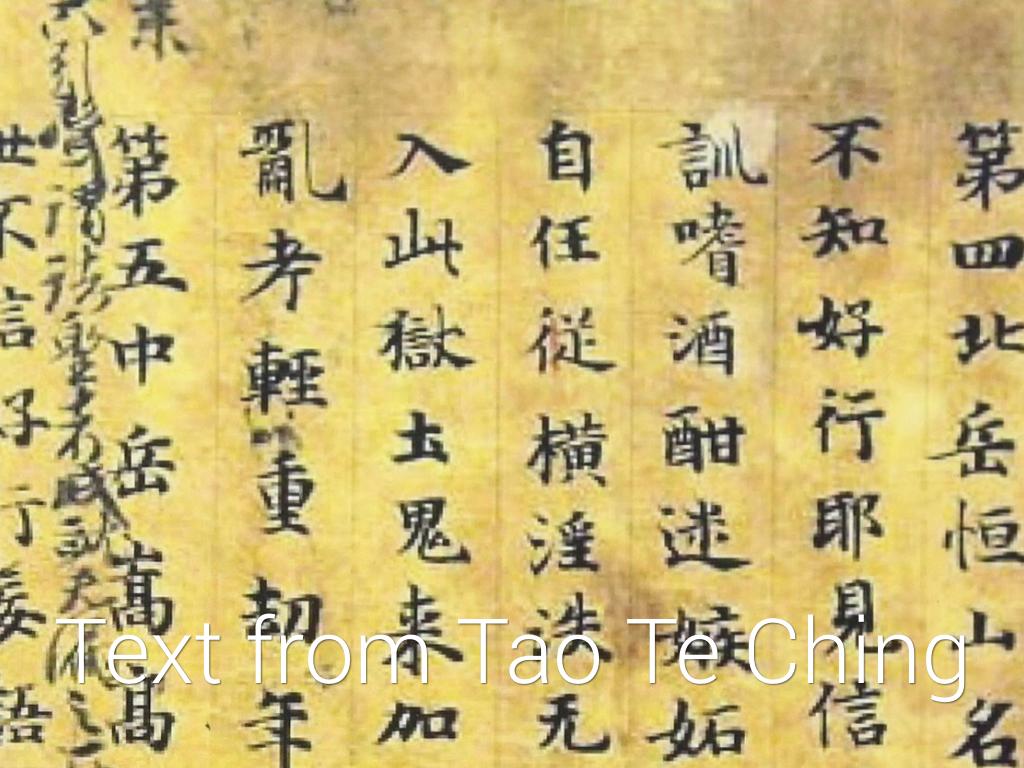 第四北岳恒山名
不知好行耶見信
訓嗜酒酣迷嫉妬
自任従横淫泆无
入此獄土鬼来加
亂考輕重劫年
第五中岳嵩高
世不信好行妄語
Text from Tao Te Ching